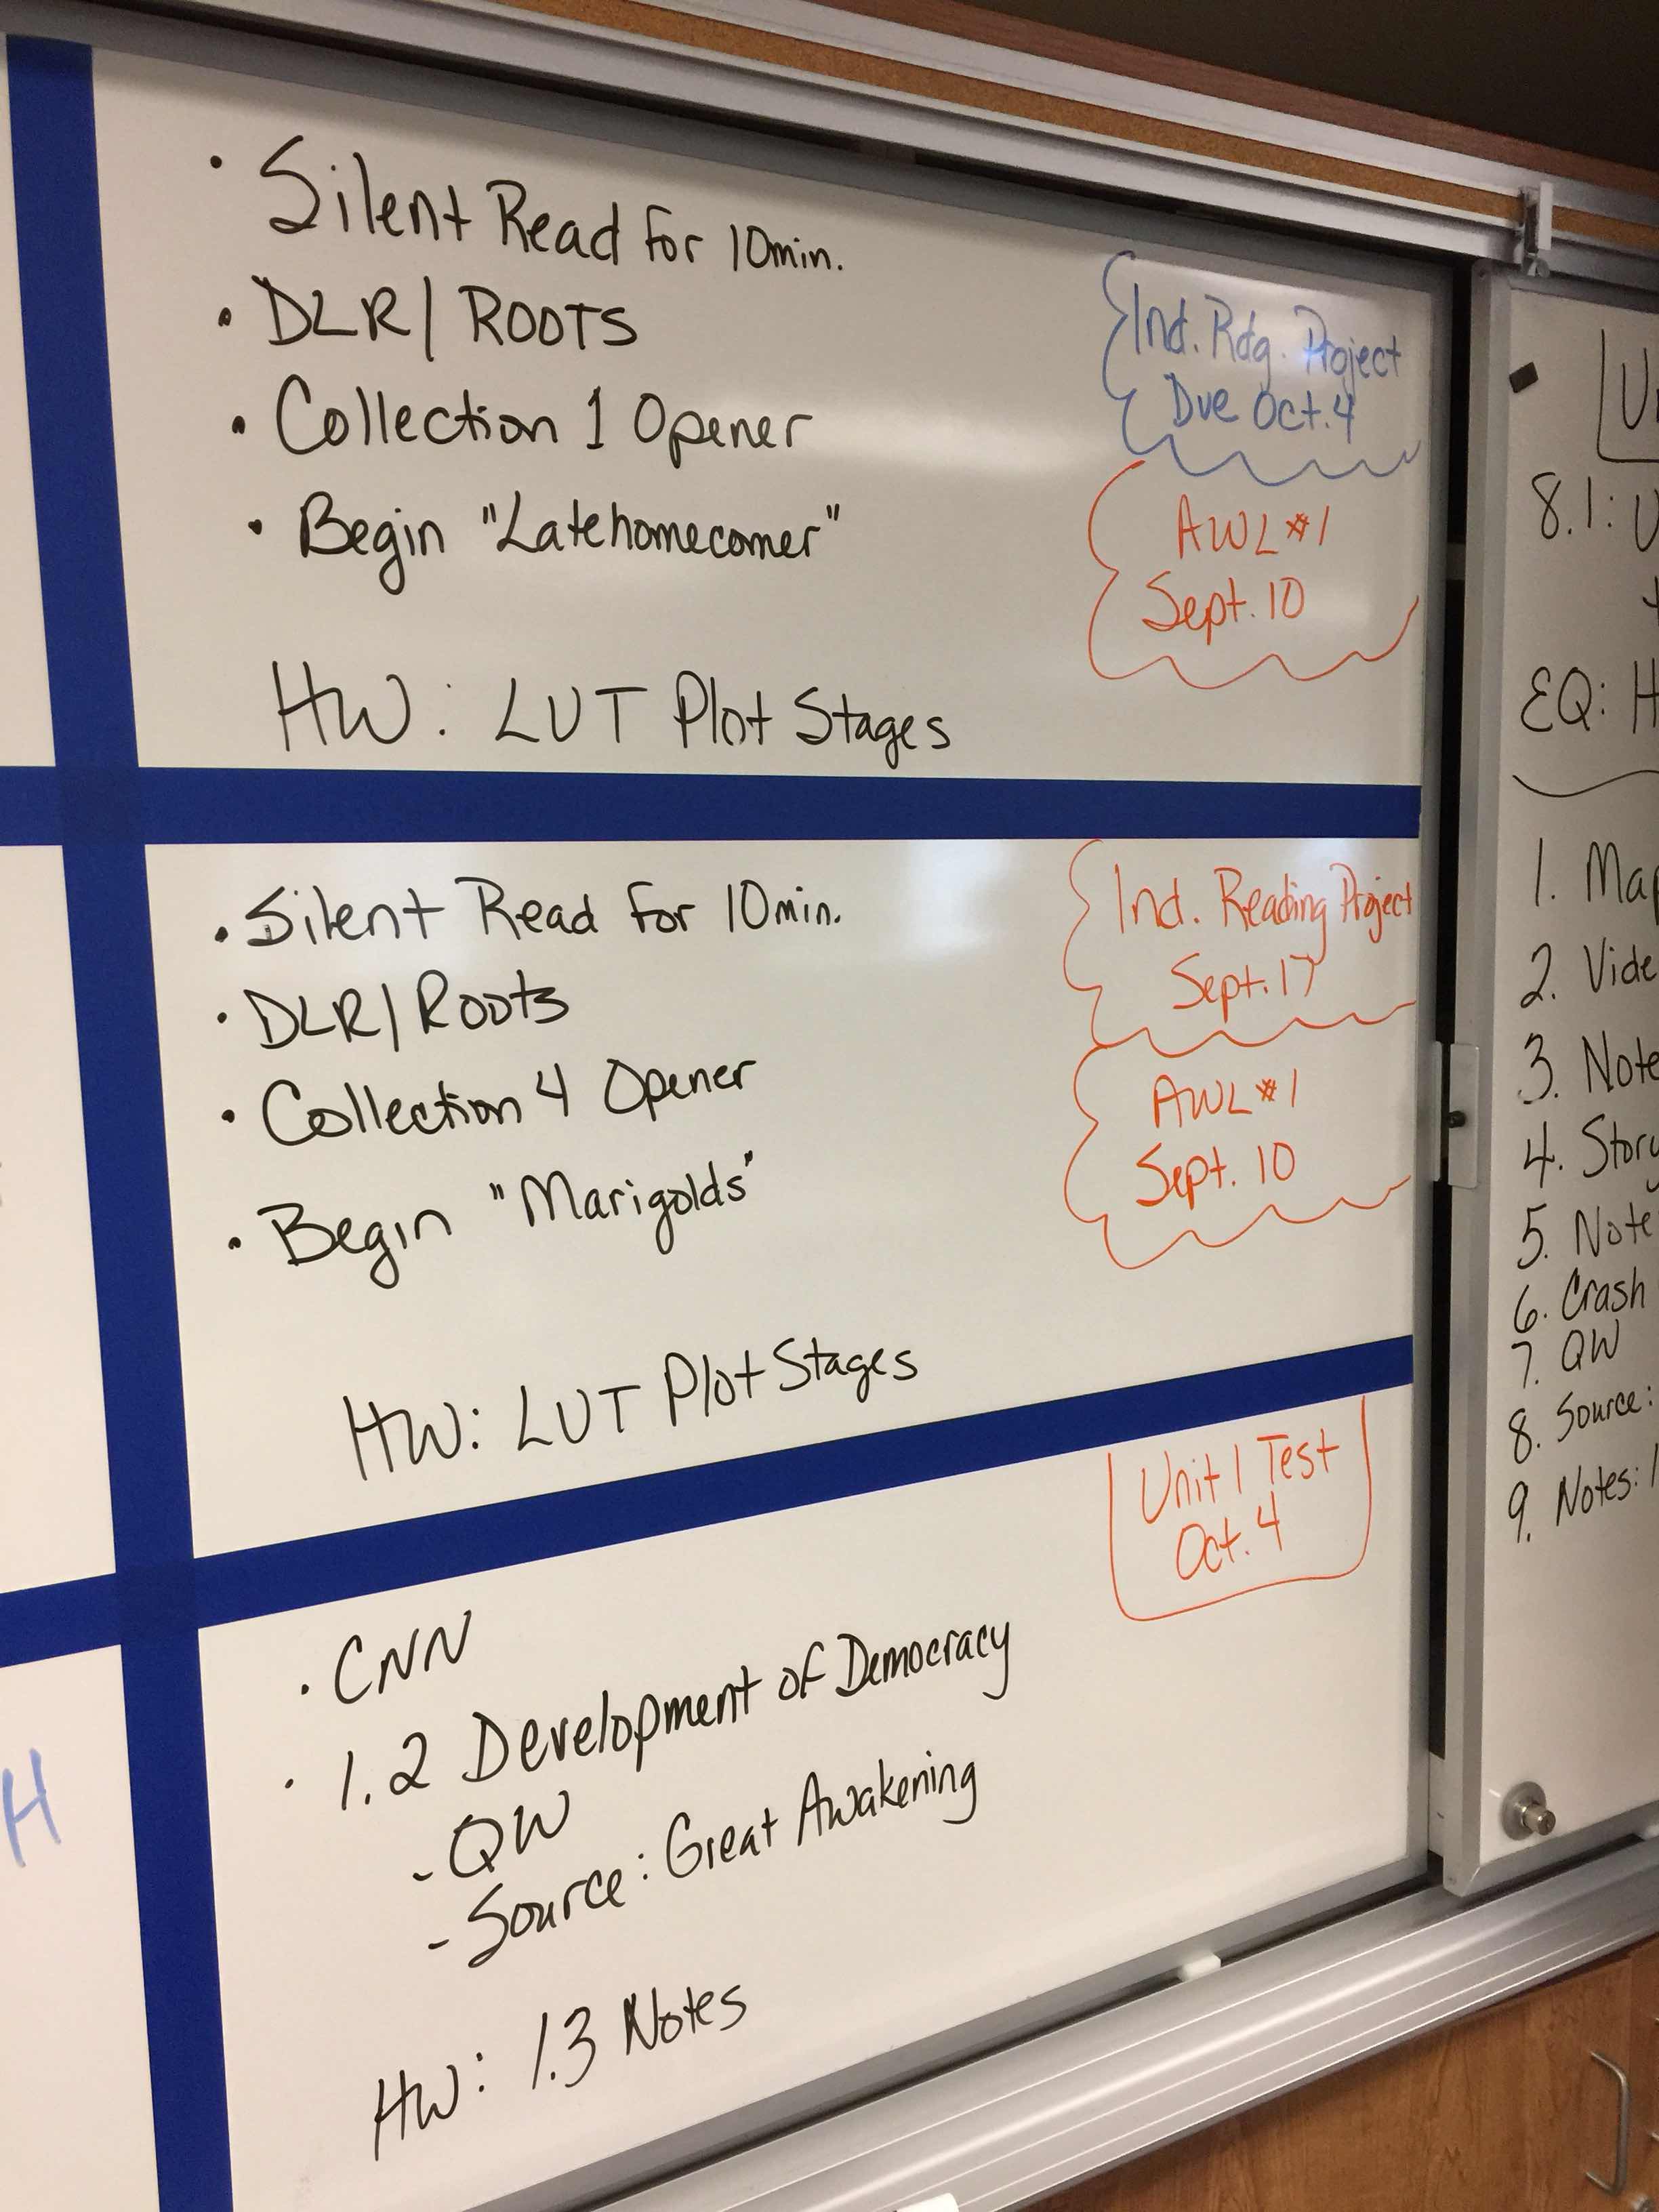 • Silent Read for 10min.
• DLR/ ROOTS
• Collection 1 Opener
• Begin "Latehomecomer"
HW: LUT Plot Stages
Ind. Rdg. Project
Due Oct. 4
AWL #1
Sept. 10
• Silent Read for 10min.
• DLR/ Roots
• Collection 4 Opener
• Begin "Marigolds"
HW: LUT Plot Stages
Ind. Reading Project
Sept. 17
AWL #1
Sept. 10
• CNN
• 1.2 Development of Democracy
- QW
- Source: Great Awakening
HW: 1.3 Notes
Unit 1 Test
Oct. 4
H
8.1:
EQ:
1.
2.
3.
4.
5.
6. Crash
7. QW
8. Source:
9. Notes: